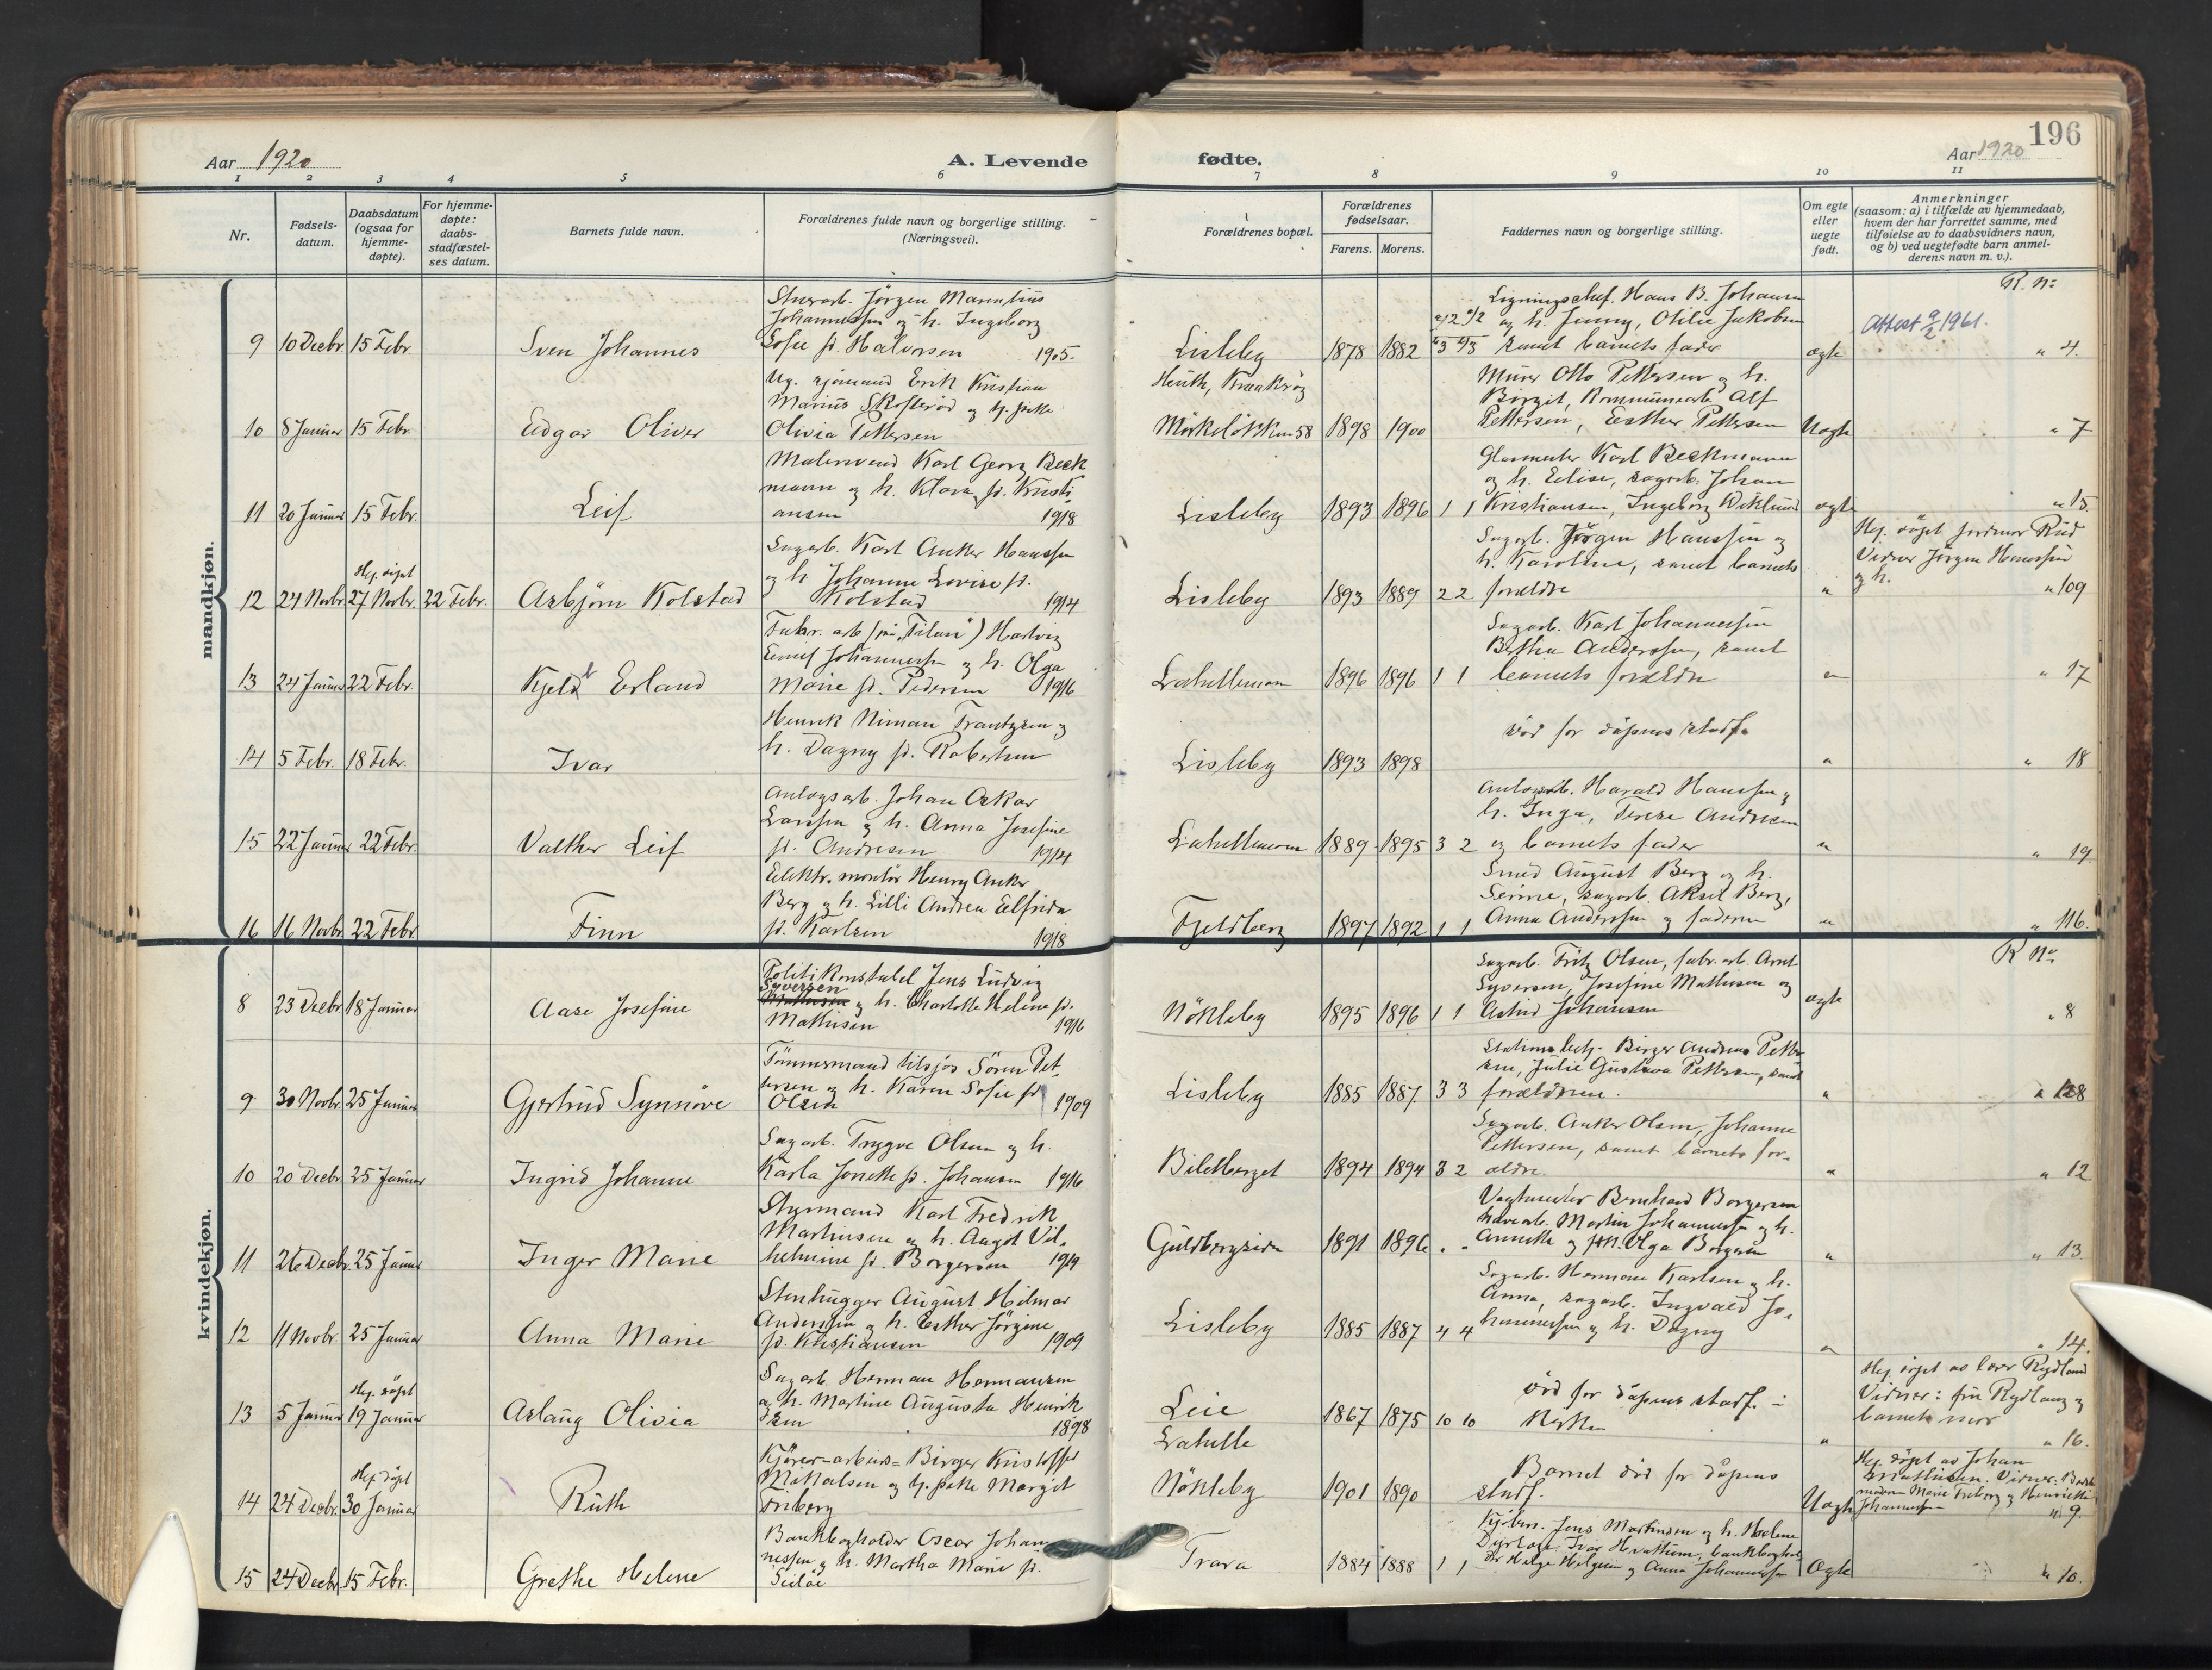 196
Aar 1920
A. Levende
fødte.
Aar 1920
1 2 3 4 5 6 7 8 9 10 11
Nr.
Fødsels-
datum.
Daabsdatum
(ogsaa for
hjemme-
døpte).
For hjemme-
døpte:
daabs-
stadfæstel-
ses datum.
Barnets fulde navn.
Forældrenes fulde navn og borgerlige stilling.
(Næringsvei).
Forældrenes bopæl.
Forældrenes
fødselsaar.
Farens. Morens.
Faddernes navn og borgerlige stilling.
Om egte
eller
uegte
født.
Anmerkninger
(saasom: a) i tilfælde av hjemmedaab,
hvem der har forrettet samme, med
tilføielse av to daabsvidners navn,
og b) ved uegtefødte barn anmel-
derens navn m. v.).
mandkjøn.
R. No
9 10 Decbr. 15 Febr. Sven Johannes
Jörgen Marentius
Johannessen og h. Ingeborg
Sofie f. Halvorsen 1905.
Lisleby 1878 1882
Ligningschef. Hans B. Johansen
og h. Jenny, Otilie Jakobsen
samt barnets fader
egte
Attest 1961.
" 4.
10 8 Januar 15 Febr. Edgar Oliver
Ug. sjömand Erik Kristian
Marius Skofteröd og p. pike
Olivia Pettersen
Kraakeröy
58 1898 1900
Murer Otto Pettersen og h.
Borgit, Kommunearb. Alf
Pettersen, Esther Pettersen
Uegte
" 7
11 20 Januar 15 Febr. Leif
Malersvend Karl Georg Beck
mann og h. Klara f. Kristi
ansen 1918
Lisleby 1893 1896 1 1
Glasmester Karl Beckmann
og h. Elise, sagarb. Johan
Kristiansen, Ingeborg Wiklund
egte
" 15.
12 24 Novbr. Hj. döpt 27 Novbr. 22 Febr. Asbjörn Kolstad
Sagarb. Karl Anker Hanssen
og h Johanne Lovise f.
Kolstad 1914
Lisleby 1893 1889 2 2
Sagarb. Jörgen Hanssen og
h. Karoline, samt barnets
forældre
"
Hj. döpt jordmor Rud
Vidner Jörgen Hanssen
og h.
" 109
13 24 Januar 22 Febr. Kjeld Erland
Fabr. arb (på "Titan") Hartvig
Johannessen og h. Olga
Marie f. Pedersen 1916
1896 1896 1 1
Sagarb. Karl Johannessen
Bertha Anderssen, samt
barnets forældre
"
" 17
14 5 Febr. 18 Febr. Ivar
Henrik Niman Frantzsen og
h. Dagny f. Robertsen
Lisleby 1893 1898
död for dåpens stadf.
"
" 18
15 22 Januar 22 Febr. Valther Leif
Anlægsarb. Johan Oskar
Larssen og h. Anna Josefine
f. Andresen 1914
1889 1895 3 2
Anlægsarb. Harald Hanssen og
h. Inga, Terese Andresen
og barnets fader
"
" 19.
16 16 Novbr. 22 Febr. Finn
Elektr. montör Henry Anker
Berg og h. Lilli Andrea Elfrida
f. Karlsen 1918
Fjeldberg 1897 1892 1 1
Smed August Berg og h.
sagarb. Aksel Berg,
Anna Anderssen og faderen
"
" 116.
kvindekjøn.
R No.
8 23 Decbr 18 Januar Aase Josefine
Politikonstabel Jens Ludvig
Syversen
og h. Charlotte Helene f.
Mathisen 1916
Nökleby 1895 1896 1 1
Sagarb. Fritz Olsen, fabr. arb. Arnt
Syversen, Josefine Mathisen og
Astrid Johansen
egte
" 8
9 30 Novbr. 25 Januar Gjertrud Synnöve
Tömmermand tilsjös Sören Pet-
tersen og h. Karen Sofie f.
Olsen 1909
Lisleby 1885 1887 3 3
Birger Andreas Petter
sen, Julie Gustava Pettersen, samt
forældrene.
"
10 20 Decbr. 25 Januar Ingrid Johanne
Sagarb. Trygve Olsen og h.
Karla Jonette f. Johansen 1916
Bileberget 1894 1894 3 2
Sagarb. Anker Olsen, Johanne
Pettersen, samt barnets for-
ældre.
"
" 12
11 26 Decbr. 25 Januar Inger Marie
Styrmand Karl Fredrik
Martinsen og h. Aagot Vil-
helmine f. Borgersen 1919
Guldbergsiden 1891 1896
Vagtmester Bernhard Borgersen
Martin Johannessen og h.
Annette og Olga Borgersen
"
" 13.
12 11 Novbr. 25 Januar Anna Marie
Stenhugger August Hilmar
Anderssen og h. Esther Jörgine
f. Kristiansen 1909
Lisleby 1885 1887 4 4
Sagarb. Hermann Karlsen og h.
Anna, sagarb. Ingvald Jo-
hannessen og h. Dagny
"
" 14.
13 5 Januar Hj. döpt 19 Januar Aslaug Olivia
Sagarb. Herman Hermansen
og h. Martine Augusta Henrik
sen 1898
Leie
Lahelle
1867 1875 10 10
död for dåpens stadf. i
Kirken
"
Hj. döpt av lærer Rydland
Vidner: fru Rydland og
barnets mor
" 16.
14 24 Decbr. Hj. döpt 30 Januar Ruth
Kjörer-arbeid= Birger Kristoffer
Mikalsen og p. pike Margit
Friberg
Nökleby 1901 1890
Barnet död for dåpens
stadf.
Uegte
Hj. döpt av Johan
Mathisen. Vidner:
Marie Friberg og Henriette
Johannessen
" 9.
15 24 Decbr. 15 Febr. Grethe Helene
Bankbogholder Oscar Johan
nessen og h. Martha Marie f.
Trara 1884 1888 1 1
Jens Martinsen og h. Helene
Dyrlæge Ivar Hvattum, bankboghol
der Helge Helgesen og Anna Johannessen
Egte
" 10.